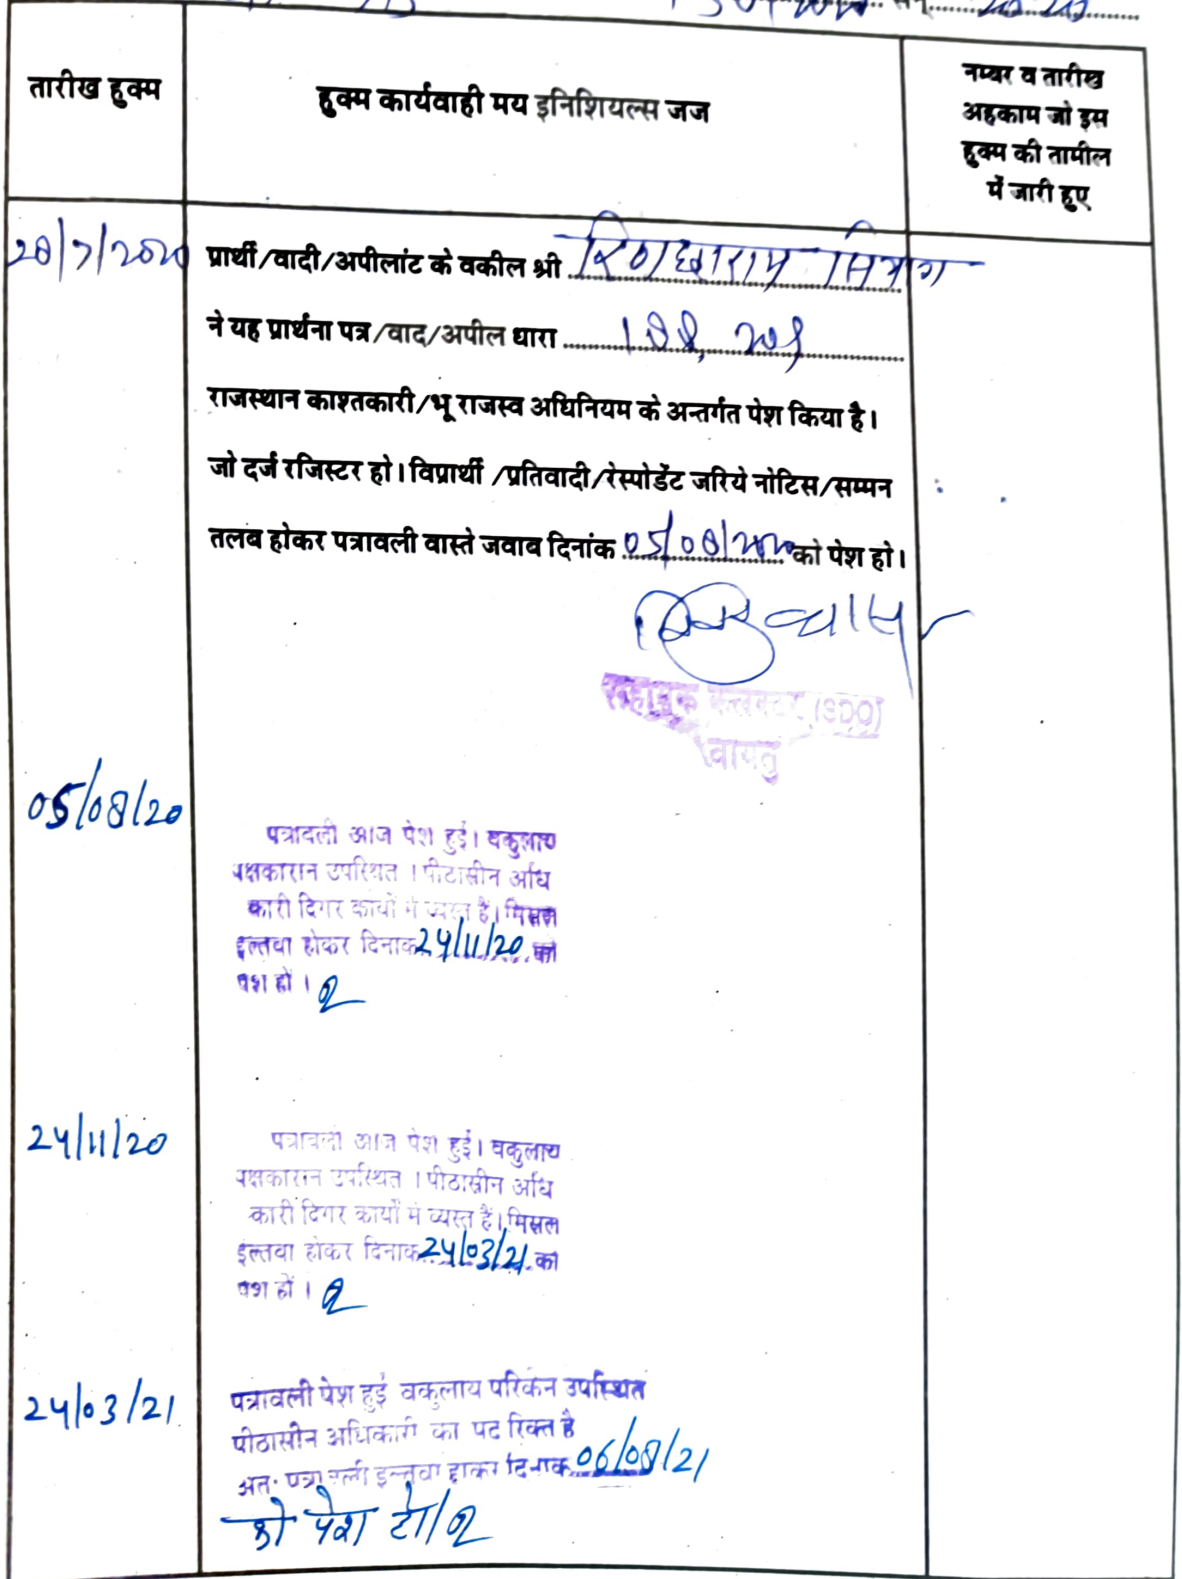 तारीख हुक्म
हुक्म कार्यवाही मय इनिशियल्स जज
नम्बर व तारीख
अहकाम जो इस
हुक्म की तामील
में जारी हुए
28/7/2020
प्रार्थी/वादी/अपीलांट के वकील श्री
ने यह प्रार्थना पत्र/वाद/अपील धारा 188, 209
राजस्थान काश्तकारी/भू राजस्व अधिनियम के अन्तर्गत पेश किया है।
जो दर्ज रजिस्टर हो। विप्रार्थी /प्रतिवादी/रेस्पोडेंट जरिये नोटिस/सम्मन
तलब होकर पत्रावली वास्ते जवाब दिनांक 05/08/2020 को पेश हो।
सहायक कलक्टर (SDO)
बायतु
05/08/20
पत्रावली आज पेश हुई। वकुलाय
पक्षकारान उपस्थित । पीठासीन अधि
कारी दिगर कार्यो में व्यस्त है। मिसल
इल्तवा होकर दिनाक 24/11/20 को
पेश हों ।
24/11/20
पत्रावली आज पेश हुई। वकुलाय
पक्षकारान उपस्थित । पीठासीन अधि
कारी दिगर कार्यो में व्यस्त है। मिसल
इल्तवा होकर दिनाक 24/03/21 को
पेश हों ।
24/03/21
पत्रावली पेश हुई वकुलाय परिकेन उपस्थित
पीठासीन अधिकारी का पद रिक्त है
अतः पत्रावली इल्तवा होकर दिनाक 06/08/21
को पेश हो/